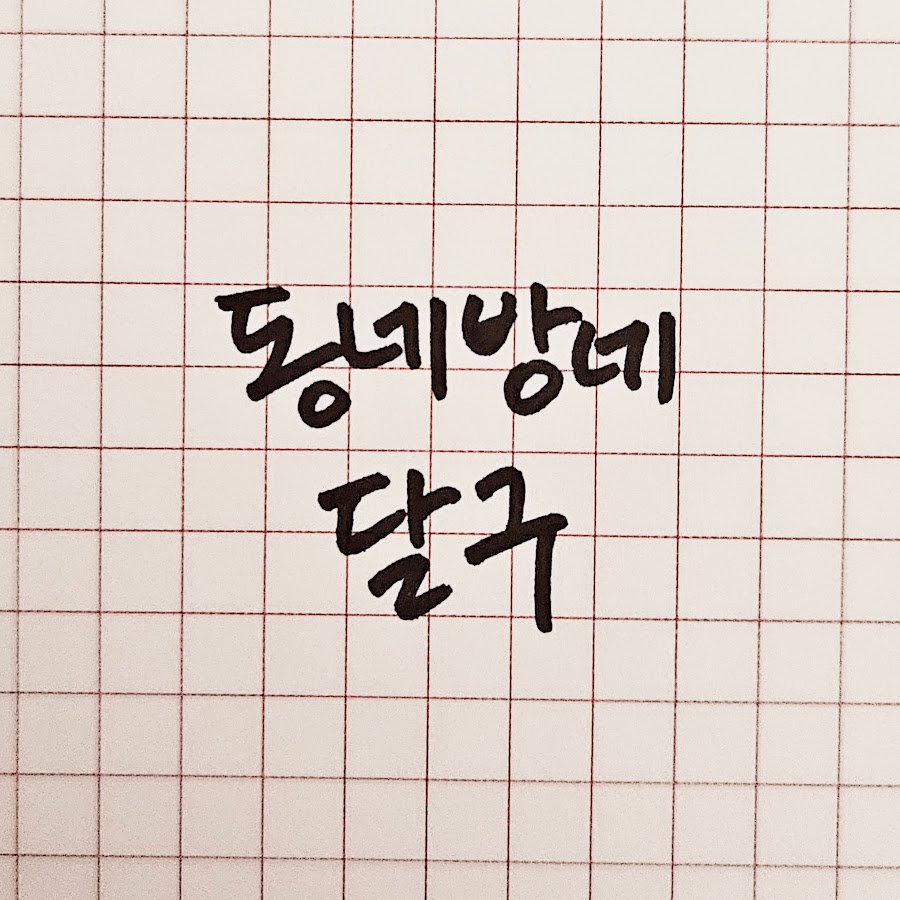 동네방네
달구